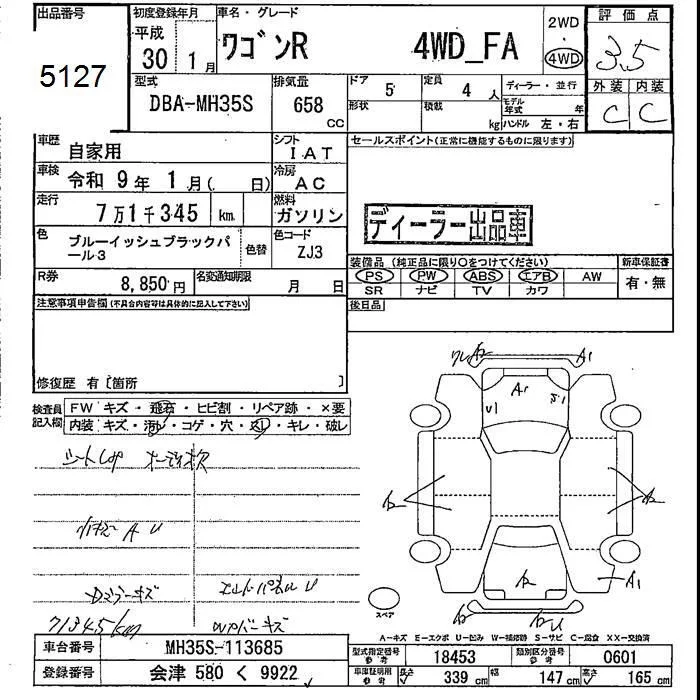 出品番号 初度登録年月 車名・グレード 評価点
5127 平成 30 1月 ワゴンR 4WD_FA 2WD 4WD 3.5
型式 排気量 ドア 5 定員 4人 ディーラー・並行 外装 内装
DBA-MH35S 658 CC 形状 積載 kg モデル年式 年 ハンドル 左・右 C C
車歴 自家用 シフト IAT セールスポイント(正常に機能するものに限ります)
車検 令和 9年 1月( 日) 冷房 AC
走行 7万1千345 km 燃料 ガソリン ディーラー出品車
色 ブルーイッシュブラックパール3 色替 色コード ZJ3
装備品 (純正品に限り○をつけてください) 新車保証書
PS PW ABS エアB AW 有・無
SR ナビ TV カワ
R券 8,850円 名変通知期限 月 日
後日品
注意事項申告欄(不具合内容等は具体的に記入して下さい)
修復歴 有〔箇所 〕
検査員記入欄 FW キズ・飛石・ヒビ割・リペア跡・×要
内装 キズ・汚レ・コゲ・穴・スレ・キレ・破レ
A2 A1
A1
U1
A2 A2
A2 A1
スペア
71345km
A-キズ E-エクボ U-凹み W-補修跡 S-サビ C-腐食 XX-交換済
車台番号 MH35S-113685 型式指定番号 参考 18453 類別区分番号 参考 0601
登録番号 会津 580 く 9922 車庫証明用 参考 長さ 339 cm 幅 147 cm 高さ 165 cm